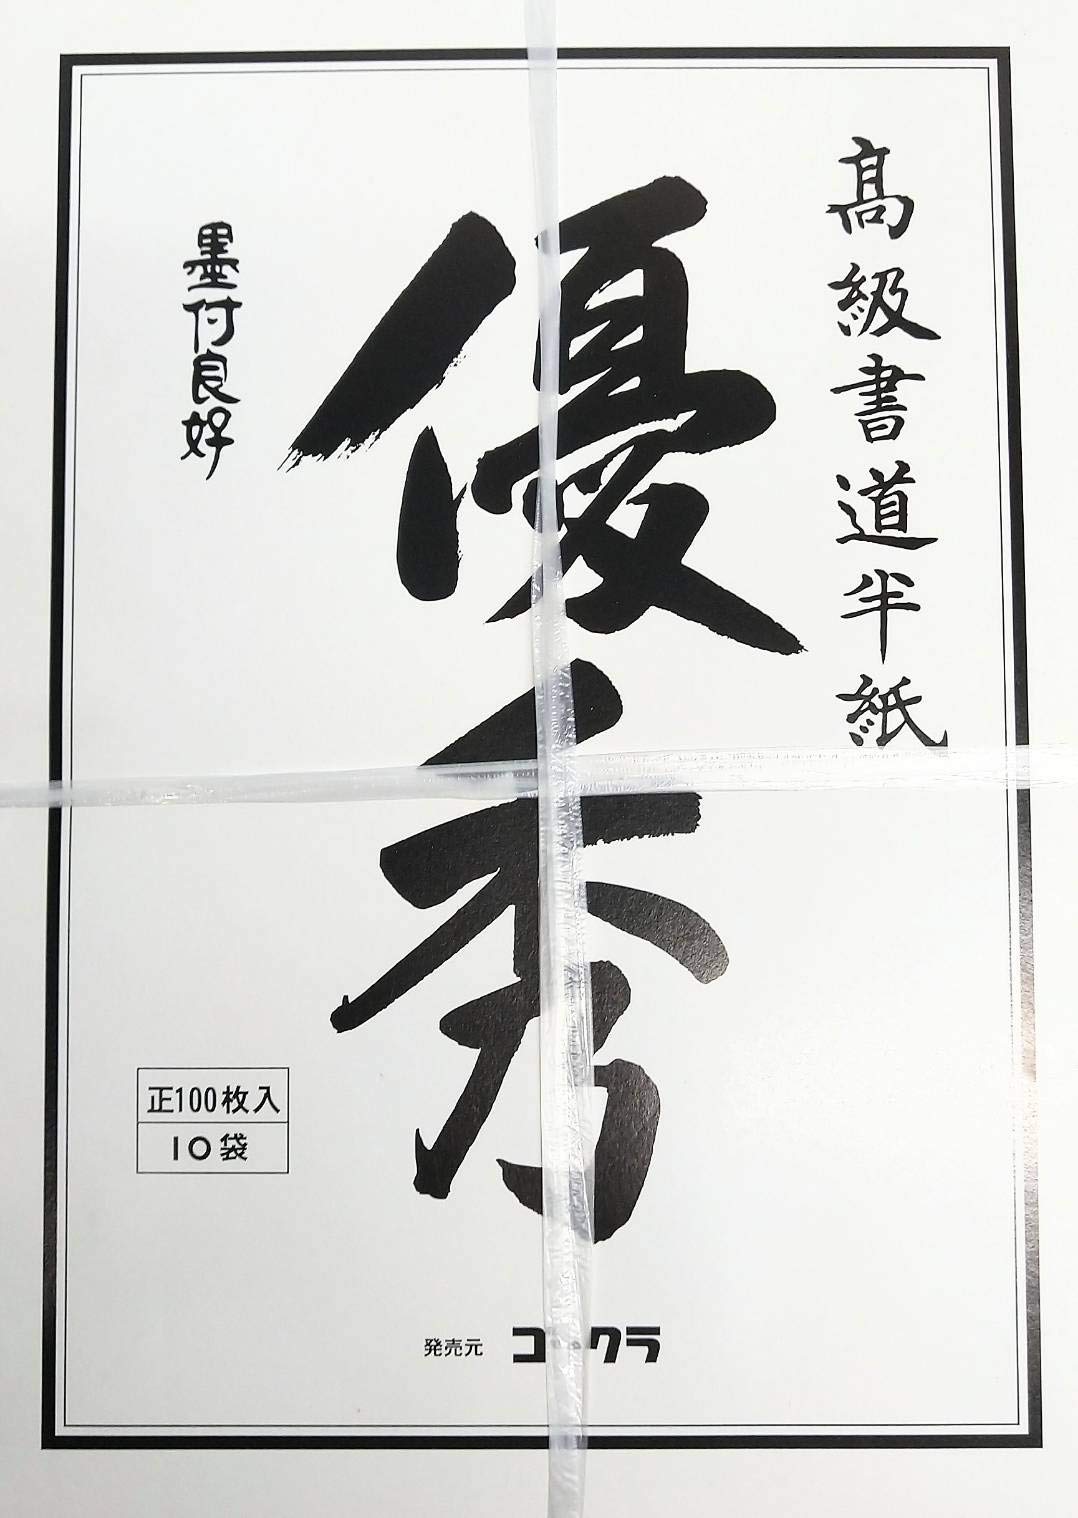 高級書道半紙
優秀
墨付良好
正100枚入
10袋
発売元